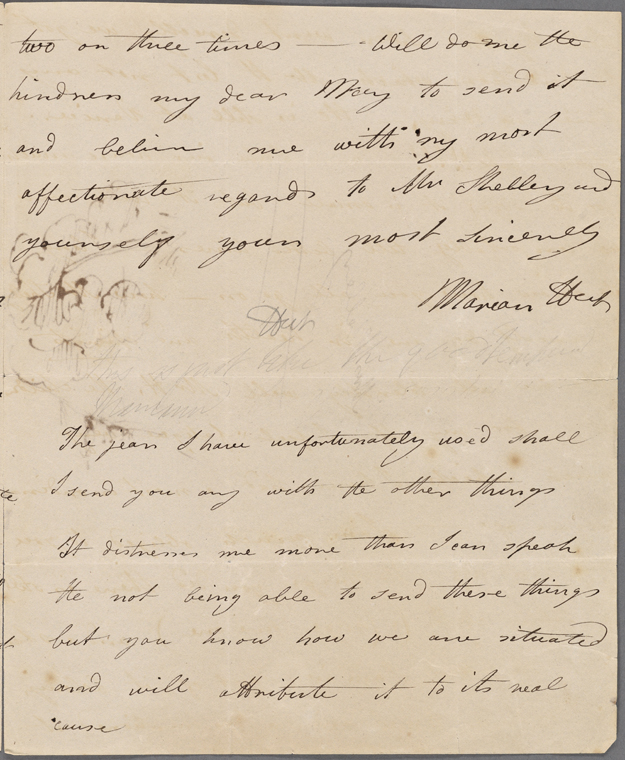 two on three times — Will do me the
kindness my dear Mary to send it
and believe me with my most
affectionate regards to Mr Shelley and
yourself yours most sincerely
Marian Hunt
Hunt
The pears I have unfortunately used shall
I send you any with the other things
It distresses me more than I can speak
the not being able to send these things
but you know how we are situated
and will attribute it to its real
cause